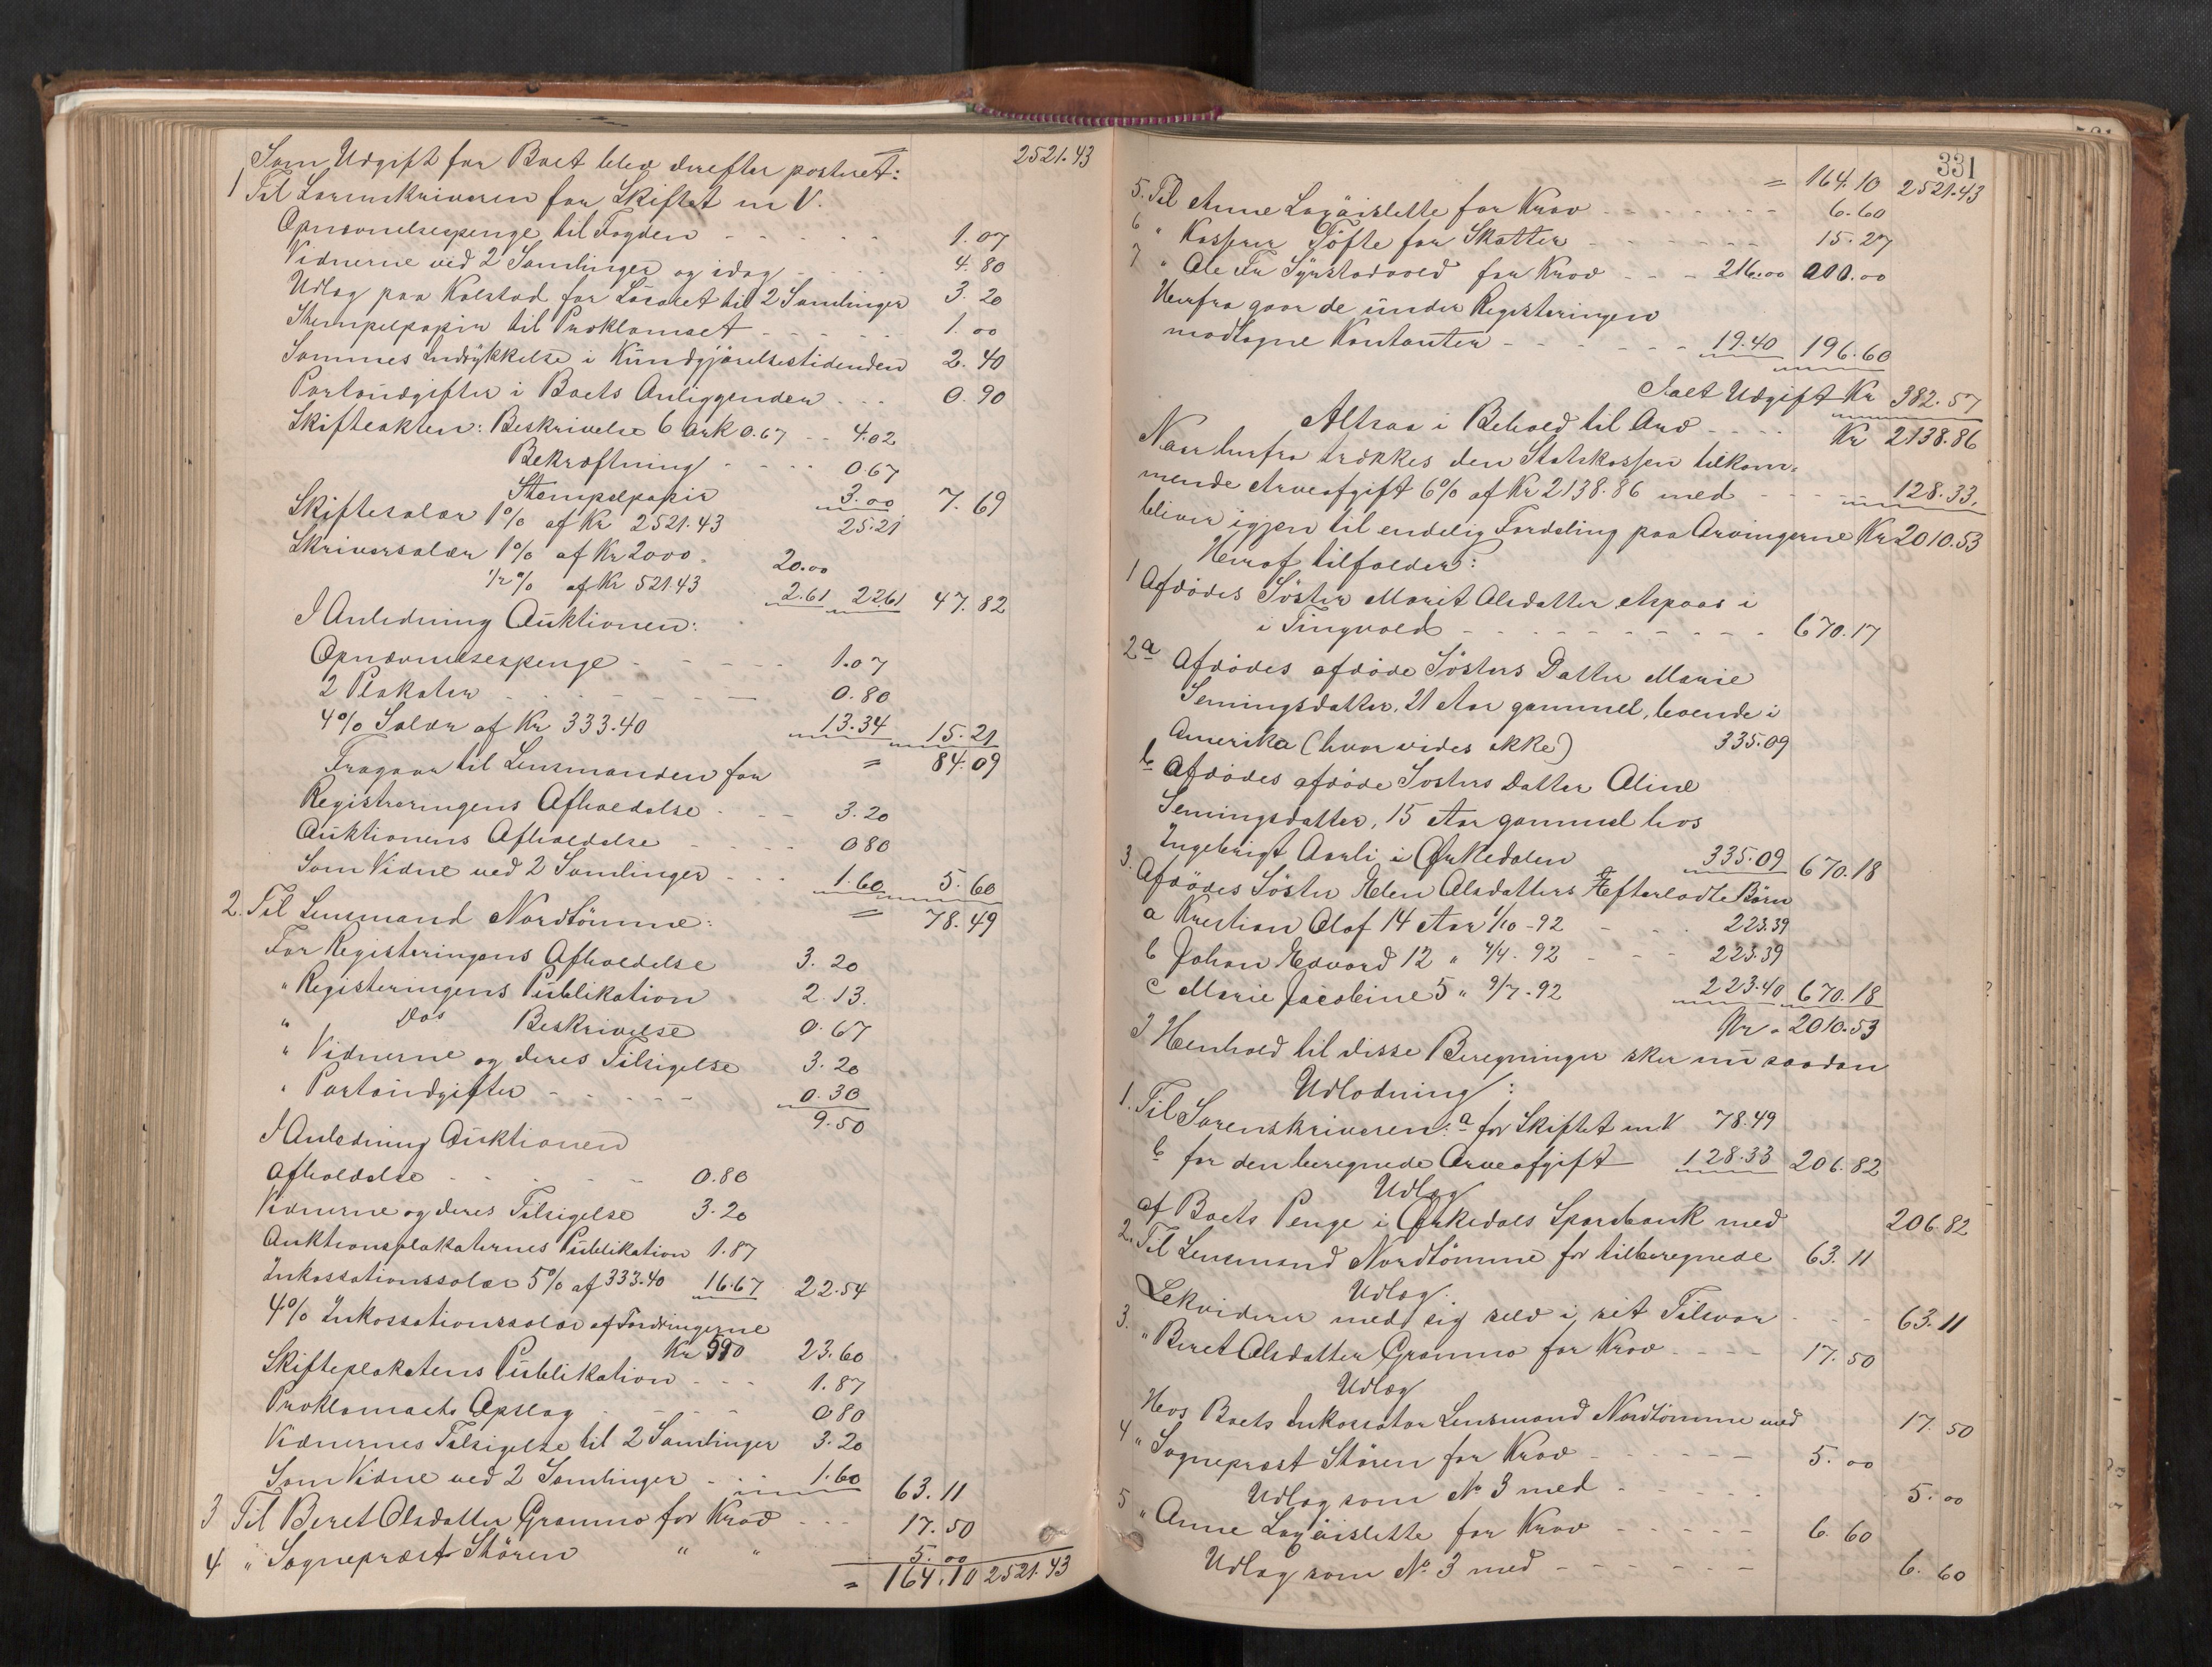 2521.43
Som Udgift for Boet blev derefter posteret:
1 Til Sorenskriveren for Skiftet m V.
Opnævnelsespenge til Fogden - - - - - 1.07
Vidnerne ved 2 Samlinger og idag - - - 4.80
Udlæg paa Kolstad for Locavet til 2 Samlinger 3.20
Stempelpapir til Proklamaet - - - - 1.00
Sammes Indrykkelse i Kundgjørelsestidenden 2.40
Portoudgifter i Boets Anliggender - - - 0.90
Skifteakten: Beskrivelse 6 Ark 0.67 - - 4.02
Bekræftning - - - - 0.67
Stempelpapir 3.00 7.69
Skiftesalær 1% af Kr 2521.43 25.21
Skriversalær 1% af Kr 2000. 20.00
1/2% af Kr 521.43 2.61 22.61 47.82
I Anledning Auktionen:
Opnævnelsespenge - - - - - 1.07
2 Plakater - - - - - - 0.80
4% Salær af Kr 333.40 13.34 15.21
= 84.09
Fragaar til Lensmanden for
Registreringens Afholdelse - - - 3.20
Auktionens Afholdelse - - - - 0 80
Som Vidne ved 2 Samlinger - - - 1.60 5.60
= 78.49
2. Til Lensmand Nordtømme:
For Registeringens Afholdelse 3.20
" Registeringens Publikation 2.13.
" Dos Beskrivelse 0.67
" Vidnerne og deres Tilsigelse 3.20
" Portoudgifter - - - - - 0.30
9.50
I Anledning Auktionen
Afholdelse - - - - - 0.80
Vidnerne og deres Tilsigelse 3.20
Auktionsplakaternes Publikation 1.87
Inkassationssalær 5% af 333.40 16.67 22.54
4% Inkassationssalær af Fordringerne
Kr 590 23.60
Skifteplakatens Publikation - - - 1.87
Proklamaets Opslag - - - - - 0 80
Vidnernes Tilsigelse til 2 Samlinger 3.20
Som Vidne ved 2 Samlinger - - - 1.60 63.11
3 Til Beret Olsdatter Gramno for Krav - - - 17.50
4 " Sogneprest Støren " " 5.00
= 164.10 2521.43
331
= 164.10 2521.43
5. Til Anne Løgøisletts for Krav - - - - - - - 6.60
6 " Kasserer Tøfte for Skatter - - - - - - 15.27
7 " Ole Fr Syrstadvold for Krav - - - 216.00
Herfra gaar de under Registeringen
modtagne Kontanter - - - - - - 19.40 196.60
Ialt Udgift Kr 382.57
Altsaa i Behold til Arv - - - - Kr 2138.86
Naar herfra trækkes den Statskassen tilkom-
mende Arveafgift 6% af Kr 2138.86 med - - - 128.33.
bliver igjen til endelig Fordeling paa Arvingerne Kr 2010.53
Heraf tilfalder:
1 Afdødes Søster Marit Olsdatter Aspaas i
i Tingvold - - - - - - - - - - 670.17
2a Afdødes afdøde Søsters Datter Marie
Semingsdatter, 21 Aar gammel, boende i
Amerika (hvor vides ikke) 335.09
b Afdødes afdøde Søsters Datter Oline
Semingsdatter, 15 Aar gammel hos
Ingebrigt Aarli i Orkedalen 335.09 670.18
3. Afdødes Søster Elen Olsdatters Efterladte Børn
a Krestian Olaf 14 Aar 1/10-92 - - - 223.39
b Johan Edvard 12 " 4/4-92 - - - 223.39
c Marie Jacobine 5 " 9/7-92 223.40 670.18
Kr. 2010.53
I Henhold til disse Beregninger sker nu saadan
Udlodning:
1. Til Sorenskriveren: a for Skiftet m V 78.49
b for den beregnede Arveafgift 128.33 206.82
Udlæg
af Boets Penge i Orkedals Sparebank med 206.82
2. Til Lensmand Nordtømme for tilberegnede 63.11
Udlæg:
Lekviderer med sig selv i sit Tilsvar - - - 63.11
3. " Beret Olsdatter Gramno for Krav - - - - 17.50
Udlæg
Hos Boets Inkassator Lensmand Nordtømme med 17.50
4 " Sogneprest Støren for Krav - - - - - 5.00
Udlæg som No 3 med - - - - - 5.00
5 " Anne Løgøisletts for Krav - - - - - 6.60
Udlæg som No 3 med - - - - - - 6.60